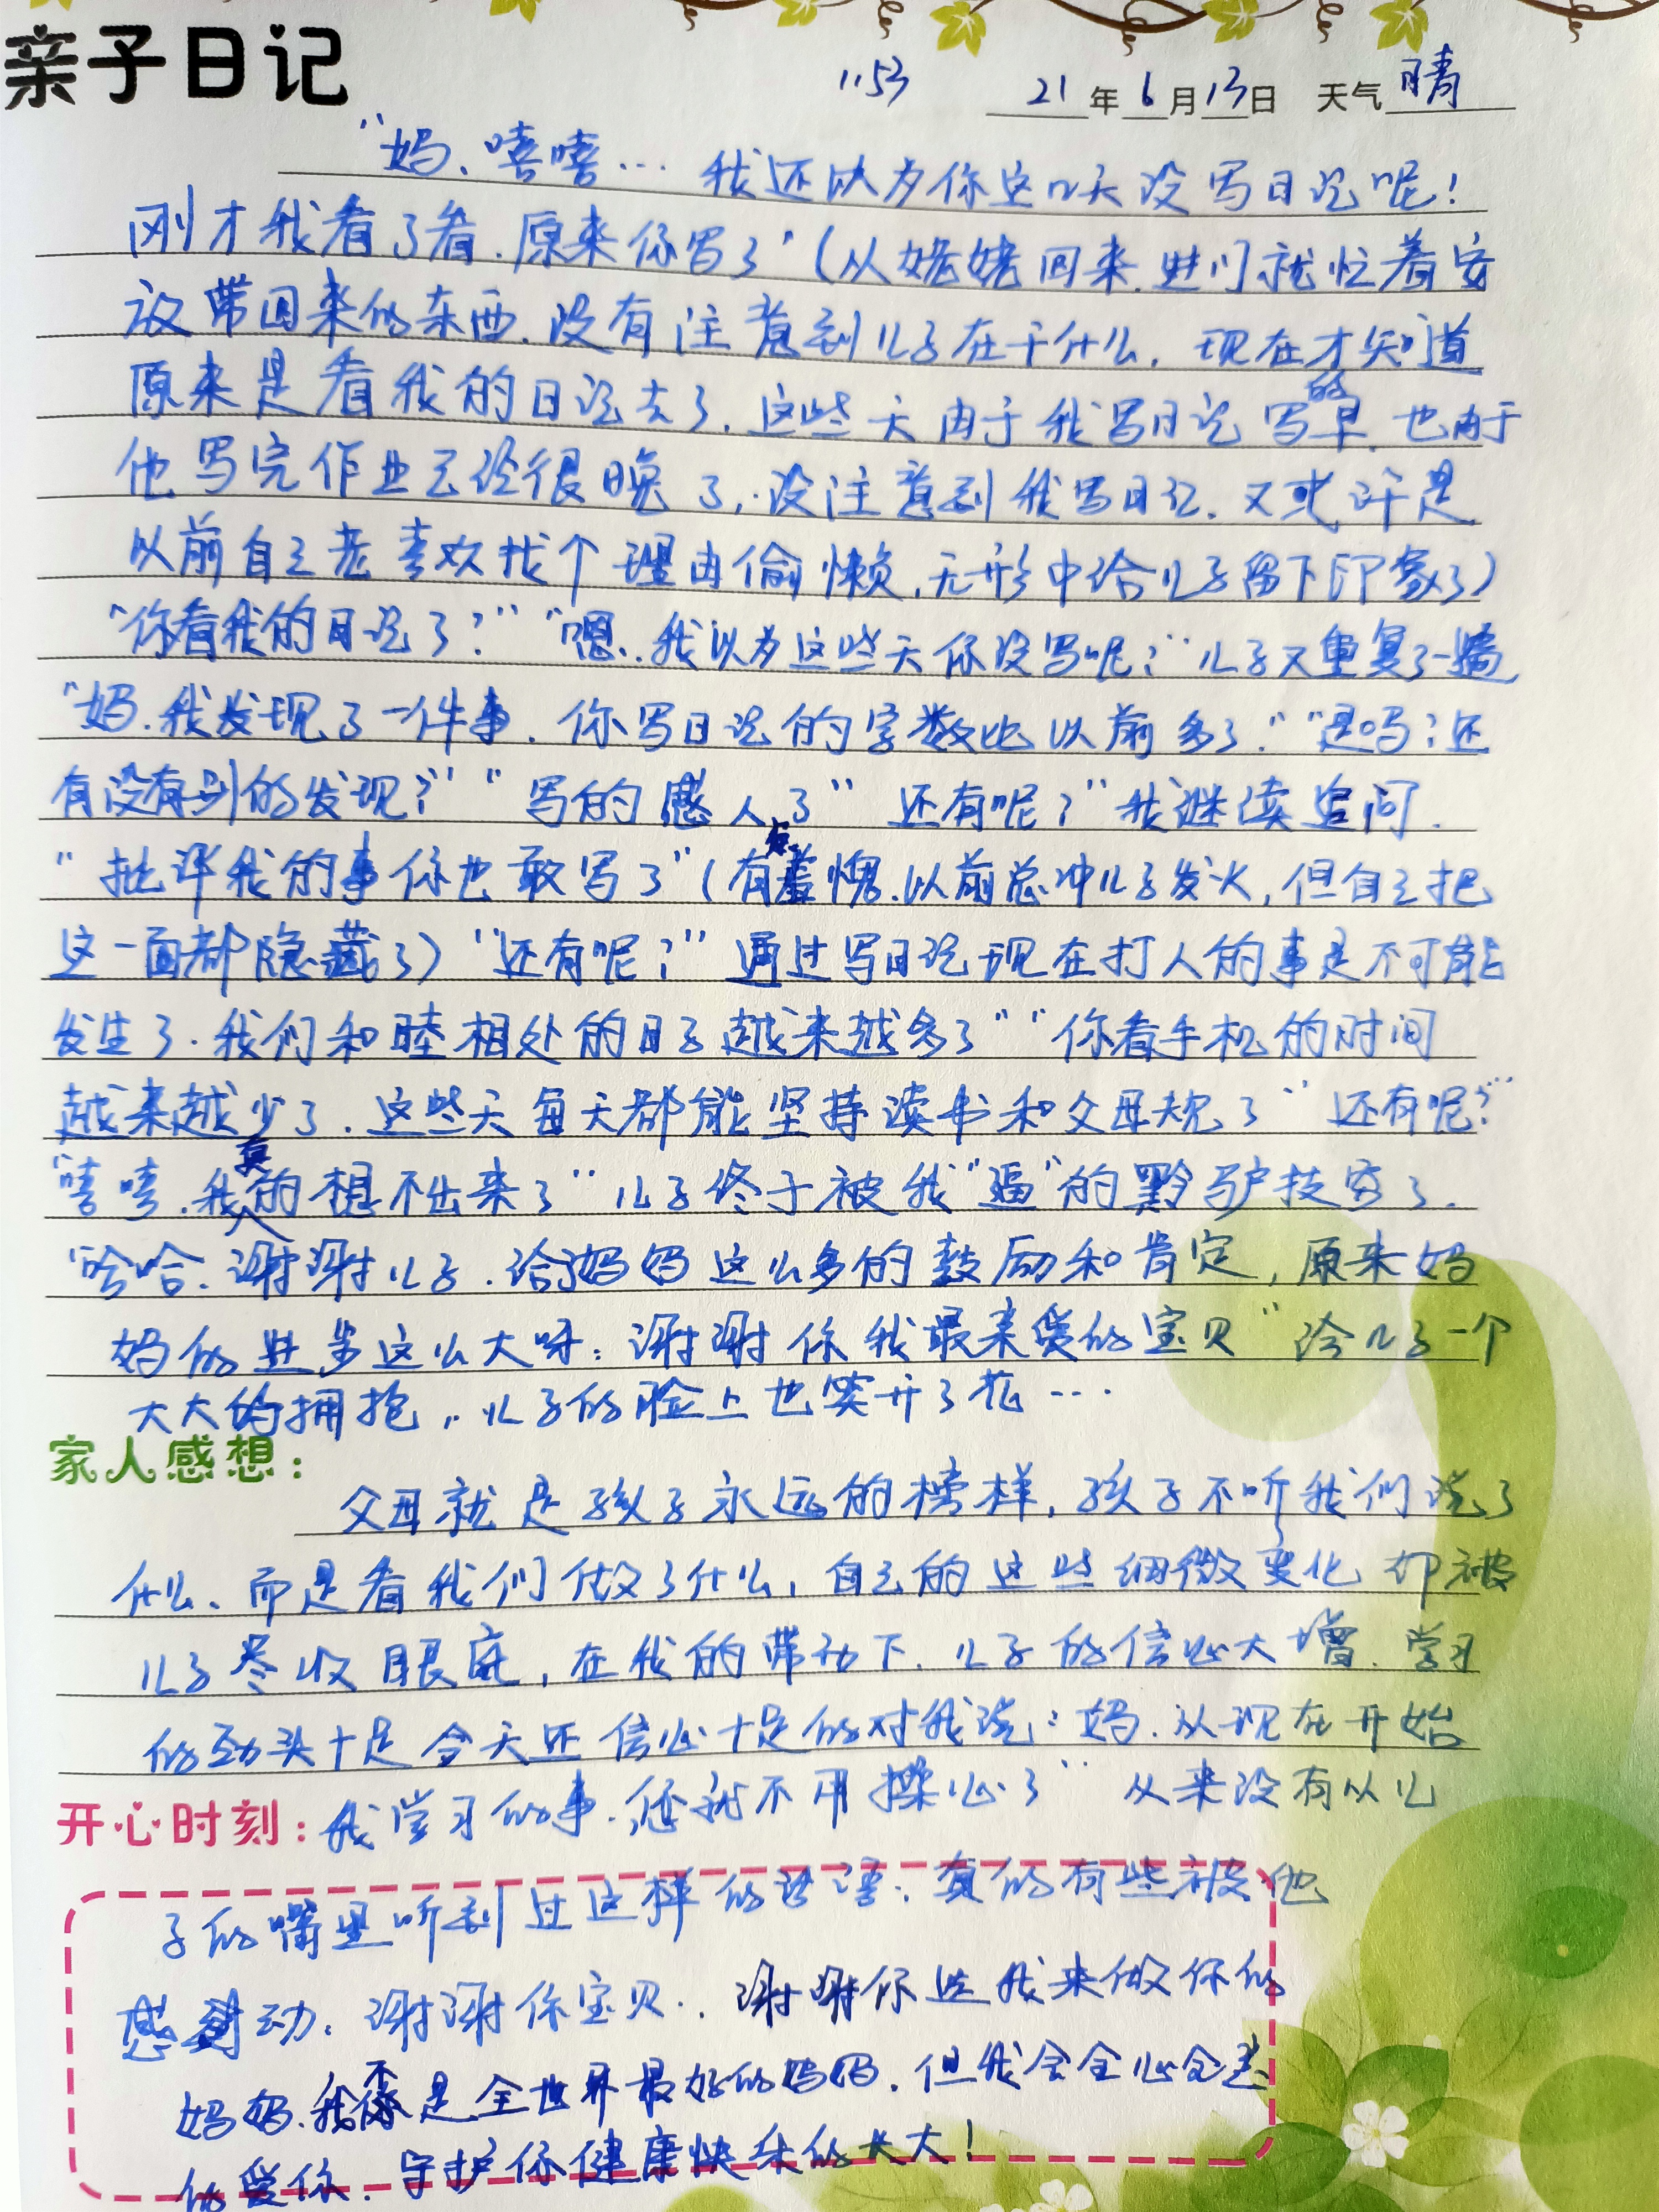 亲子日记
1153 21年6月13日 天气晴
"妈、嘻嘻… 我还以为你这几天没写日记呢!
刚才我看了看.原来你写了"(从姥姥回来.进门就忙着安
放带回来的东西.没有注意到儿子在干什么,现在才知道
原来是看我的日记去了.这些天由于我写日记写的早.也由于
他写完作业已经很晚了,.没注意到我写日记.又或许是
以前自己老喜欢找个理由偷懒,无形中给儿子留下印象了)
"你看我的日记了?" "嗯..我以为这些天你没写呢?"儿子又重复了一遍
"妈.我发现了一件事.你写日记的字数比以前多了." "是吗?还
有没有别的发现?" "写的感人了" 还有呢?"我继续追问.
"批评我的事你也敢写了"(有点羞愧.以前总冲儿子发火,但自己把
这一面都隐藏了)"还有呢?"通过写日记现在打人的事是不可能
发生了.我们和睦相处的日子越来越多了" "你看手机的时间
越来越少了.这些天每天都能坚持读书和父母规了" 还有呢?"
"嘻嘻.我真的想不出来了"儿子终于被我"逼"的黔驴技穷了.
"哈哈.谢谢儿子.给了妈妈这么多的鼓励和肯定,原来妈
妈的进步这么大呀:谢谢你我最亲爱的宝贝"给儿子一个
大大的拥抱,.儿子的脸上也笑开了花…
家人感想:
父母就是孩子永远的榜样,孩子不听我们说了
什么、而是看我们做了什么,自己的这些细微变化却被
儿子尽收眼底,在我的带动下.儿子的信心大增.学习
的劲头十足今天还信心十足的对我说:妈.从现在开始
开心时刻:我学习的事.您就不用操心了" 从来没有从儿
子的嘴里听到过这样的话语:真的有些被他
感动:谢谢你宝贝.谢谢你选我来做你的
妈妈.我不是全世界最好的妈妈.但我会全心全意
的爱你.守护你健康快乐的长大!